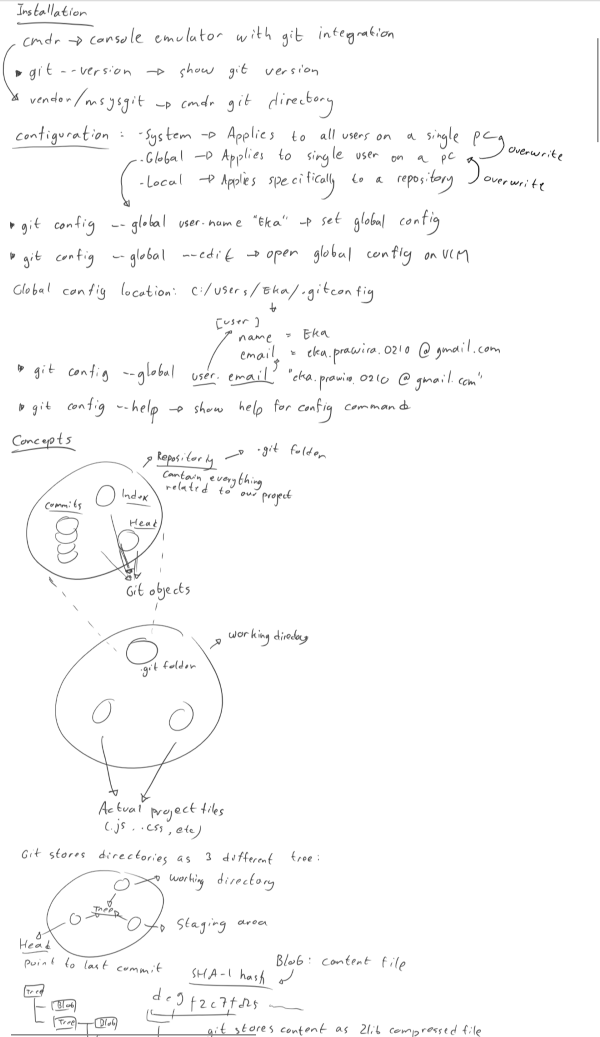 Installation
cmdr → console emulator with git integration
git --version → show git version
vendor/msysgit → cmdr git directory
configuration : -System → Applies to all users on a single pc
overwrite
-Global → Applies to single user on a pc
-Local → Applies specifically to a repository
overwrite
git config --global user.name "Eka" → set global config
git config --global --edit → open global config on VIM
Global config location: C:/users/Eka/.gitconfig
[user]
name = Eka
email = eka.prawira.0210@gmail.com
git config --global user.email "eka.prawira.0210@gmail.com"
git config --help → show help for config command
Concepts
Repository → .git folder
contain everything
related to our project
Index
commits
Heat
Git objects
working directory
.git folder
Actual project files
(.js . .css, etc)
Git stores directories as 3 different tree:
working directory
Tree
Staging area
Heat
point to last commit
Blob: content file
SHA-1 hash
Tree
Blob
Tree
Blob
git stores content as zlib compressed file